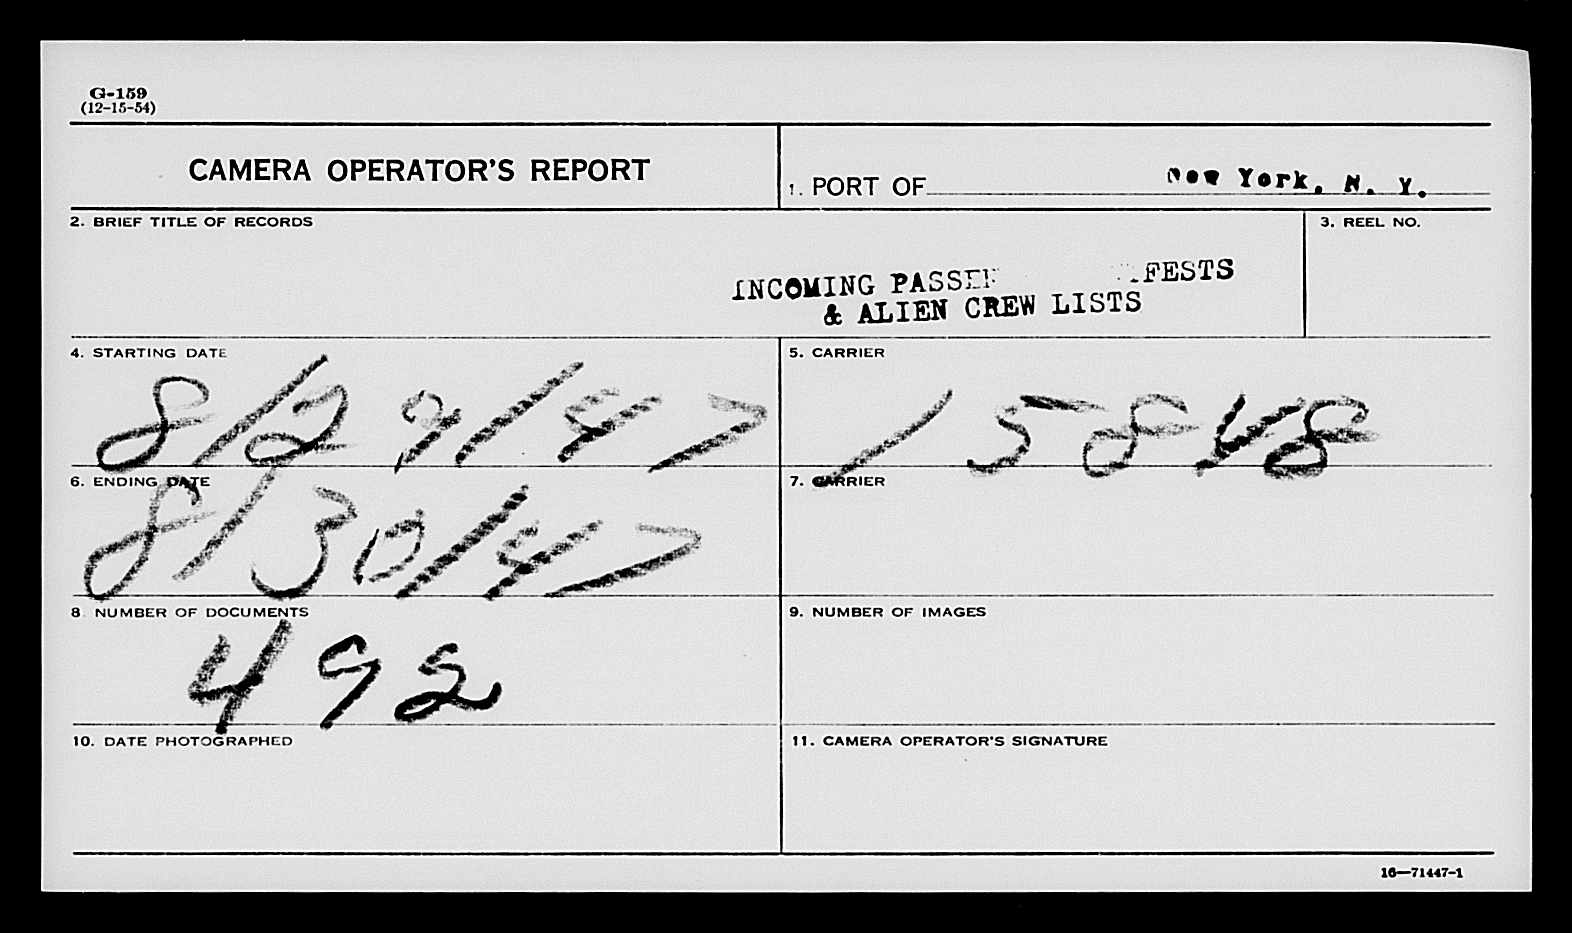 G-159
(12-15-54)
CAMERA OPERATOR'S REPORT
1. PORT OF New York, N. Y.
2. BRIEF TITLE OF RECORDS
3. REEL NO.
INCOMING FESTS
& ALIEN CREW LISTS
4. STARTING DATE
8/29/47
5. CARRIER
15848
6. ENDING DATE
8/30/47
7. CARRIER
8. NUMBER OF DOCUMENTS
492
9. NUMBER OF IMAGES
10. DATE PHOTOGRAPHED
11. CAMERA OPERATOR'S SIGNATURE
16—71447-1